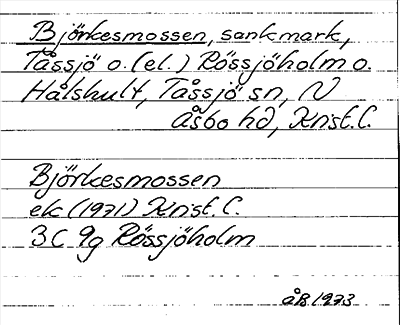 Björkesmossen, sankmark,
Tåssjö o. (el.) Rössjöholm o.
Hålshult, Tåssjö sn, N
Åsbo hd, Krist. L.
Björkesmossen
ek (1971) Krist. L.
3C 9g Rössjöholm
åB 1973